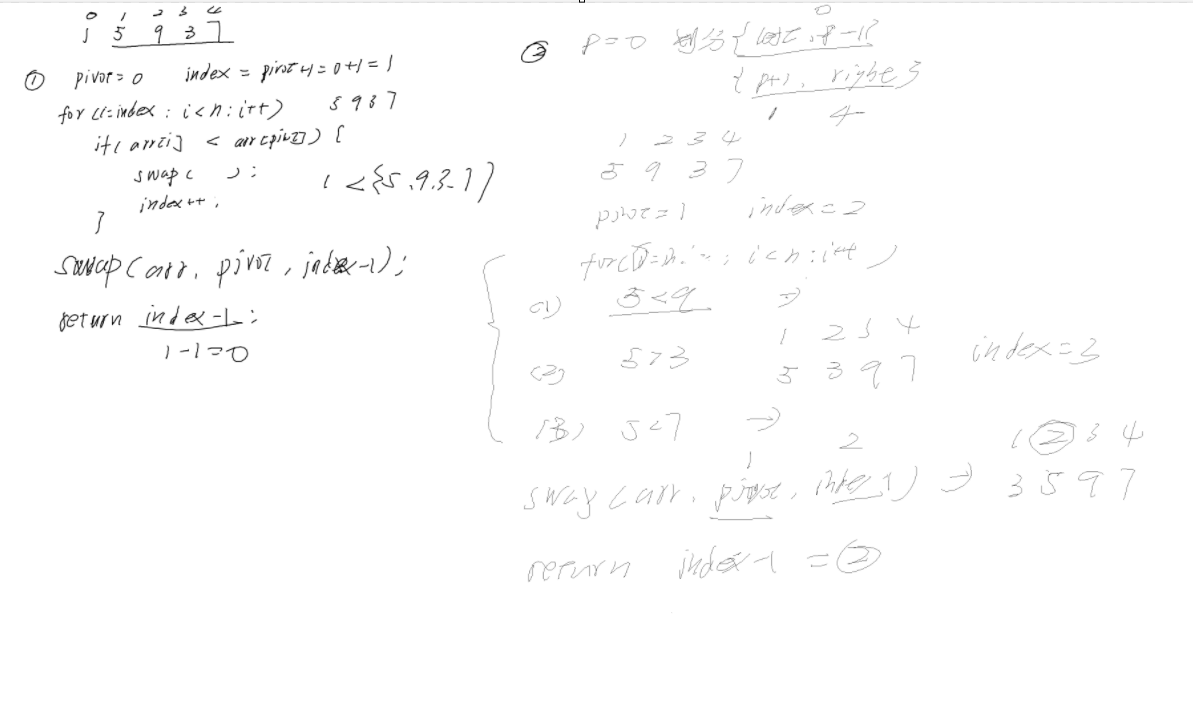 0 1 2 3 4
1 5 9 3 7
① pivot=0 index = pivot+1=0+1=1
for (i=index : i<n : i++) 5 9 3 7
if( arr[i] < arr[pivot]) {
swap( ) ;
index++ ;
1 <{5,9,3,7}
}
swap(arr, pivot, index-1);
return index-1;
1-1=0
② p=0 划分{ left, p-1}
0
{ p+1, right}
1 4
1 2 3 4
5 9 3 7
pivot=1 index=2
for( ; i<n : i++ )
(1) 5<9 ⇒
1 2 3 4
(2) 5>3 5 3 9 7 index=3
(3) 5<7 ⇒
1 2
1 ② 3 4
swap(arr, pivot, index-1) ⇒ 3 5 9 7
return index-1 = ②